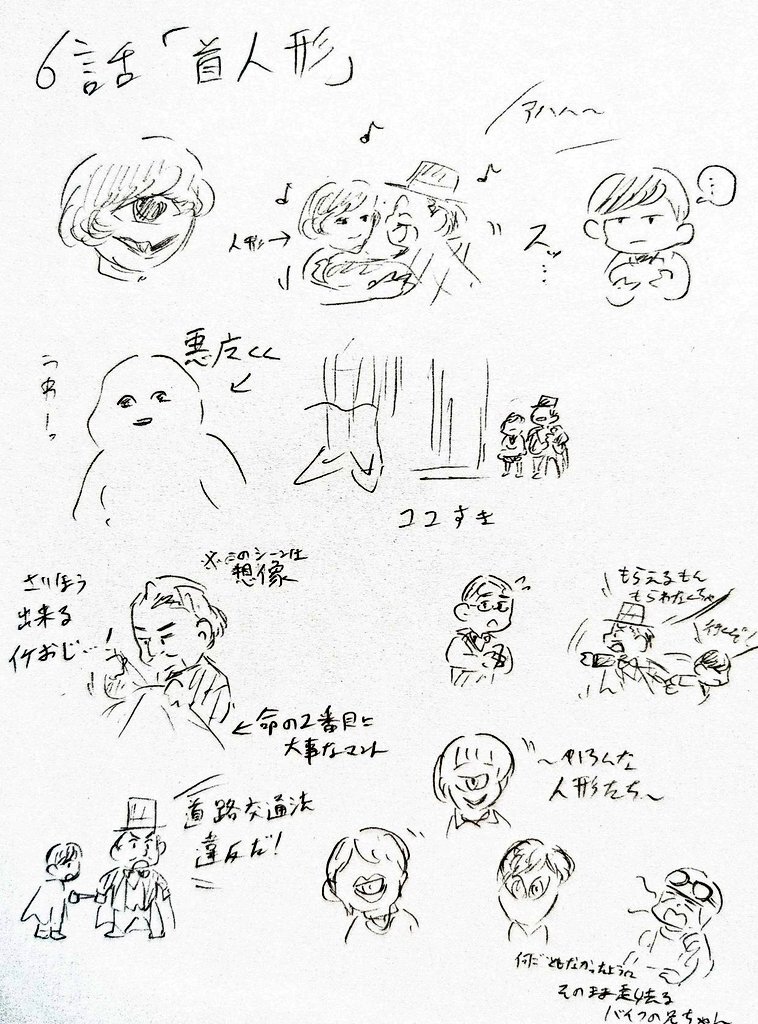 6話「首人形」
アハハ〜
人形→
スッ…
…
うわーっ
悪魔くん
ココすき
※このシーンは
想像
さいほう
出来る
イケおじ…!
←命の2番目に
大事なマント
もらえるもん
もらわなくちゃ
行くぞ!
〜ゆかいな
人形たち〜
道路交通法
違反だ!
何ごともなかったように
そのまま走り去る
バイクの兄ちゃん